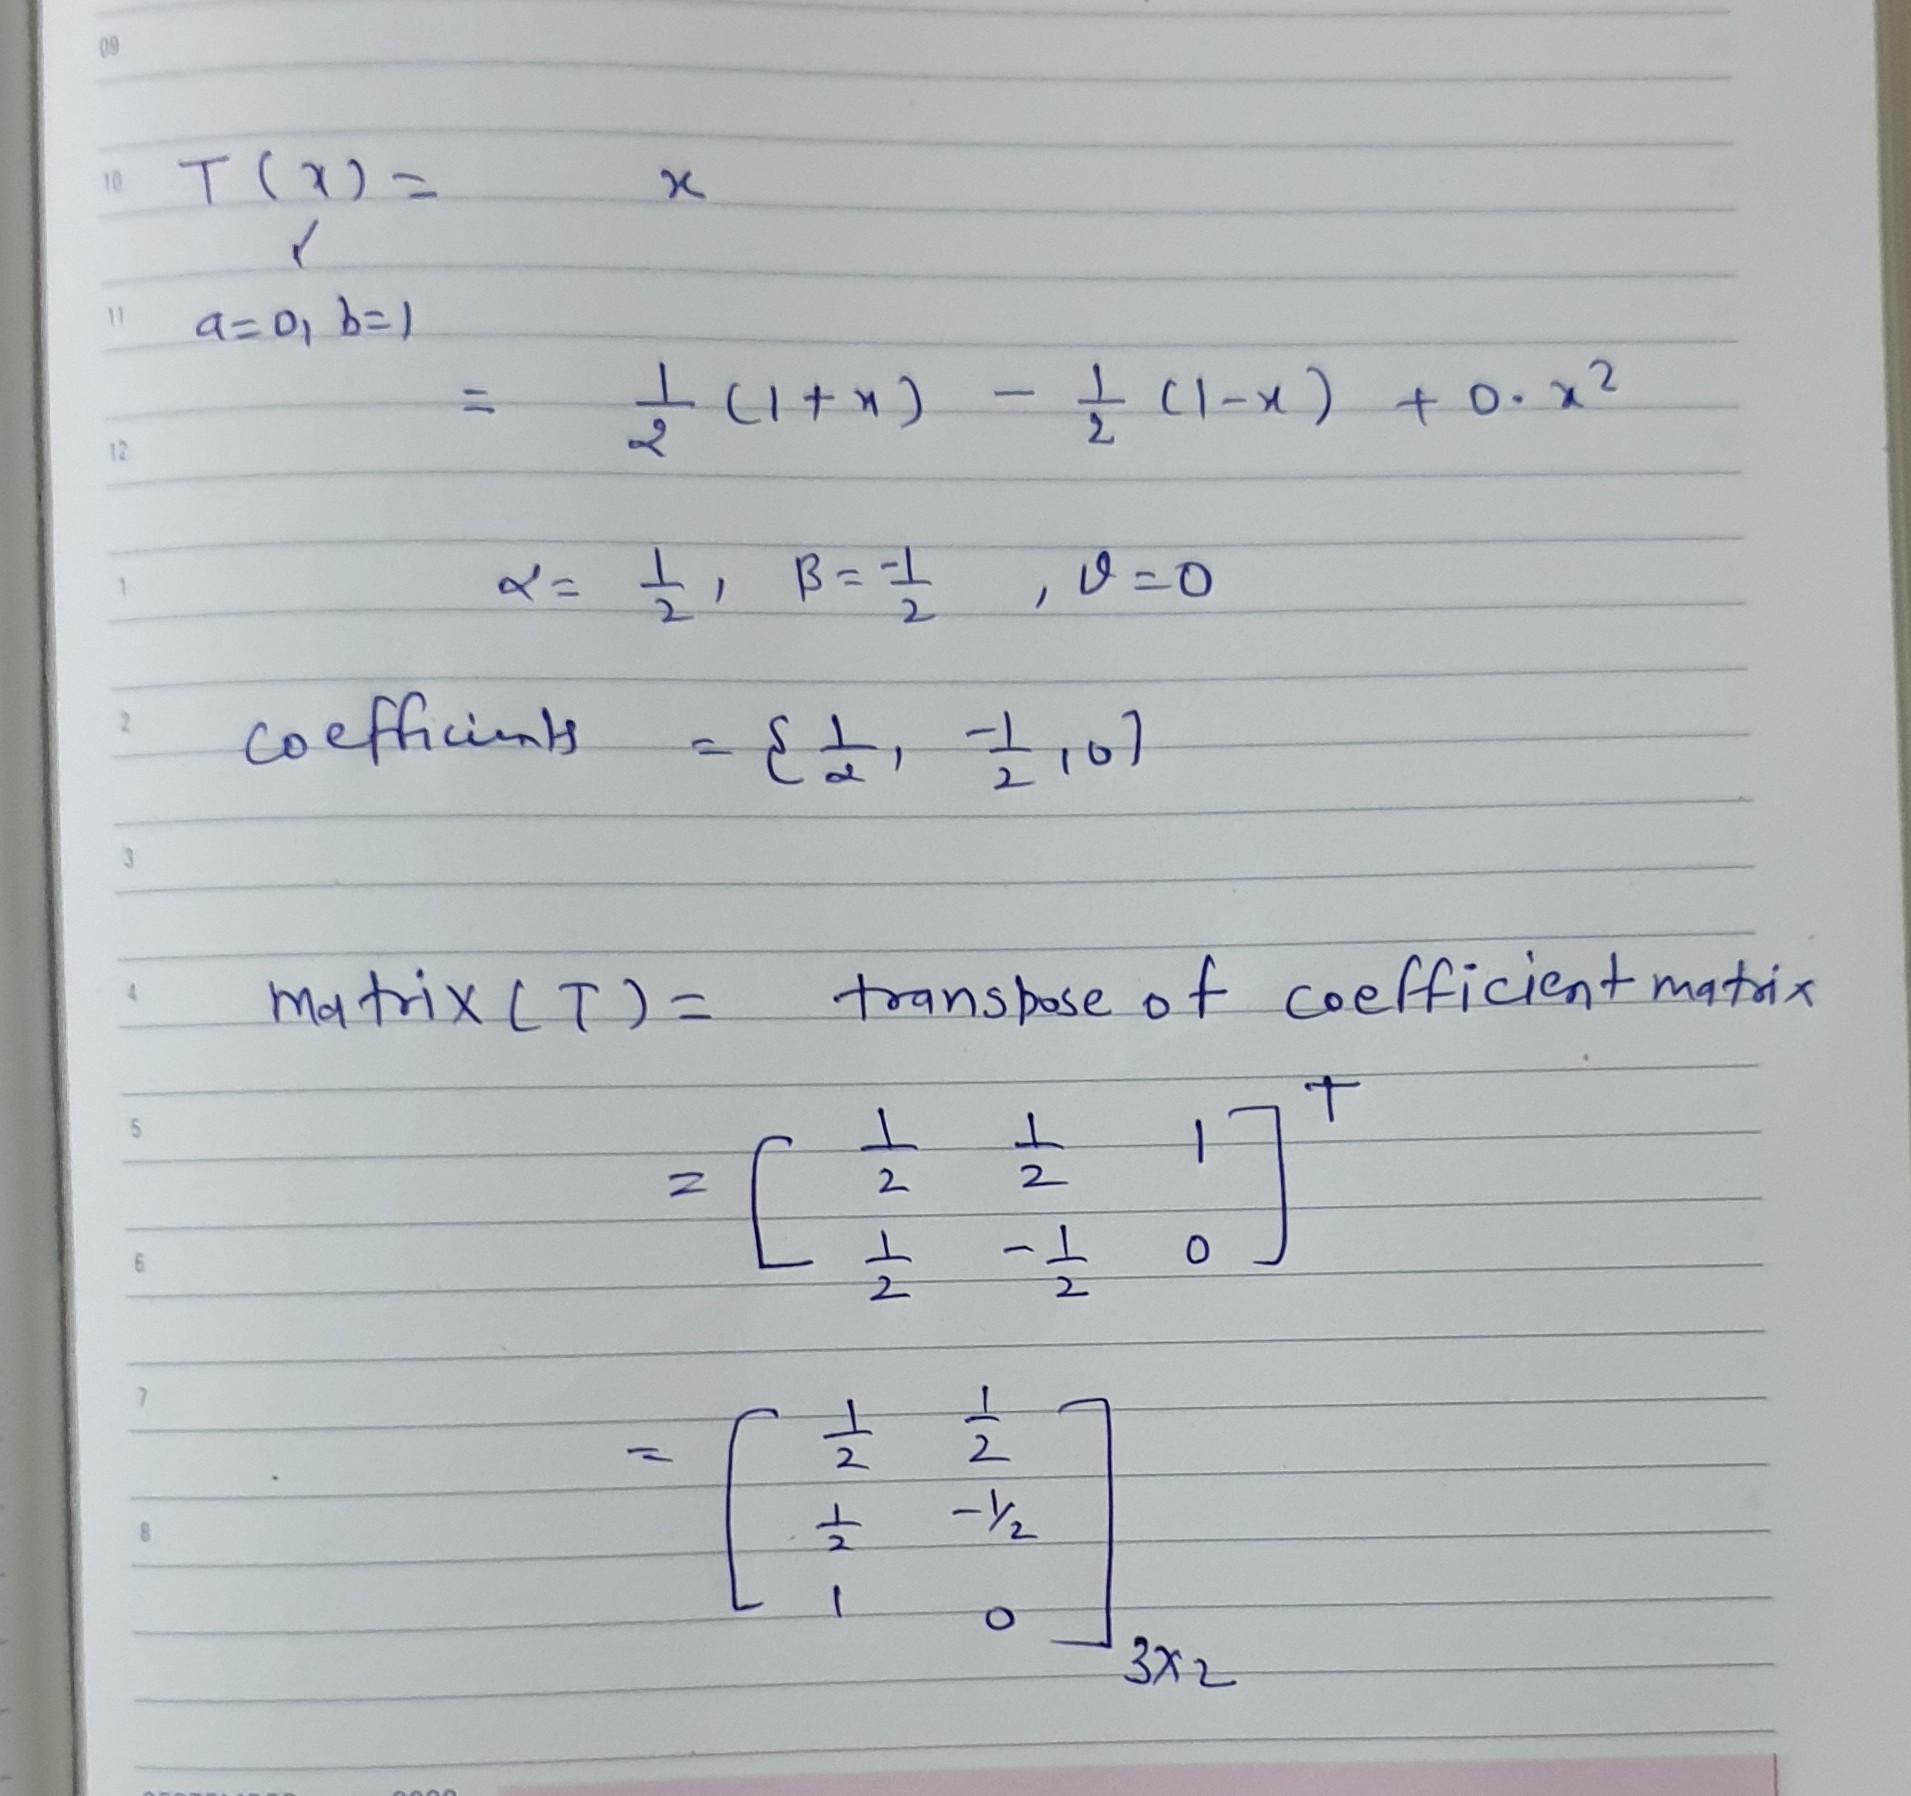 09
10 T(x) = x
11 a=0, b=1
= 1/2 (1+x) - 1/2 (1-x) + 0. x²
12
1 α = 1/2, β = -1/2, ϑ = 0
2 coefficients = {1/2, -1/2, 0}
3
4 matrix (T) = transpose of coefficient matrix
5 = [ 1/2 1/2 1
6 1/2 -1/2 0 ]ᵀ
7 = [ 1/2 1/2
8 1/2 -1/2
1 0 ] 3x2